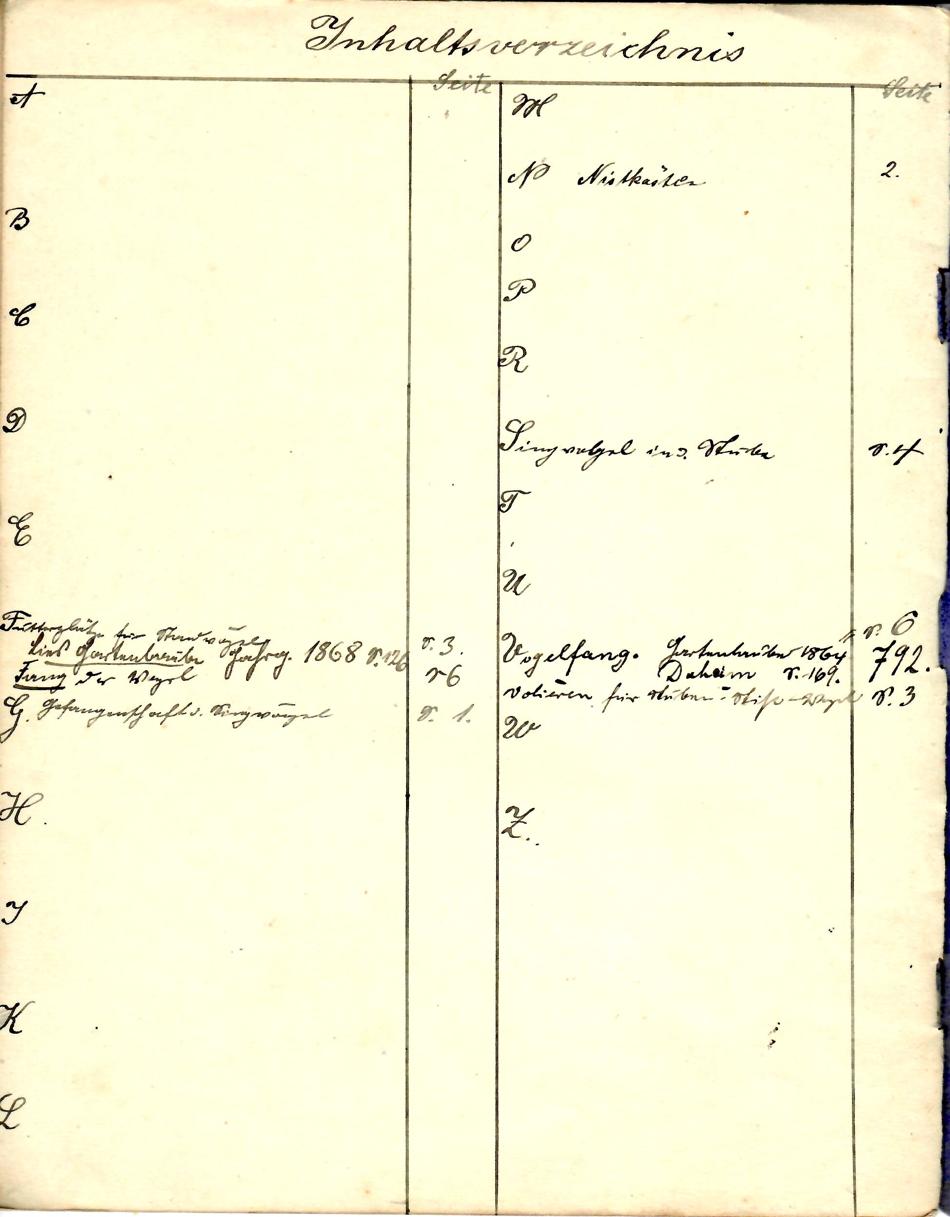 Inhaltsverzeichnis
Seite
A
B
C
D
E
Futterplätze für Standvögel
Lies Gartenlaube Jahrg. 1868 S. 126 S. 3.
Fang der Vögel S 6
G. Gefangenschaft d. Singvögel S. 1.
H.
J
K
L
Seite
M
N Nistkästen 2.
O
P
R
Singvögel in d. Stube S. 4
T
U
S. 6
Vogelfang. Gartenlaube 1864 792.
Daheim S. 169.
Volieren für Stuben- Vögel S. 3
W
Z..